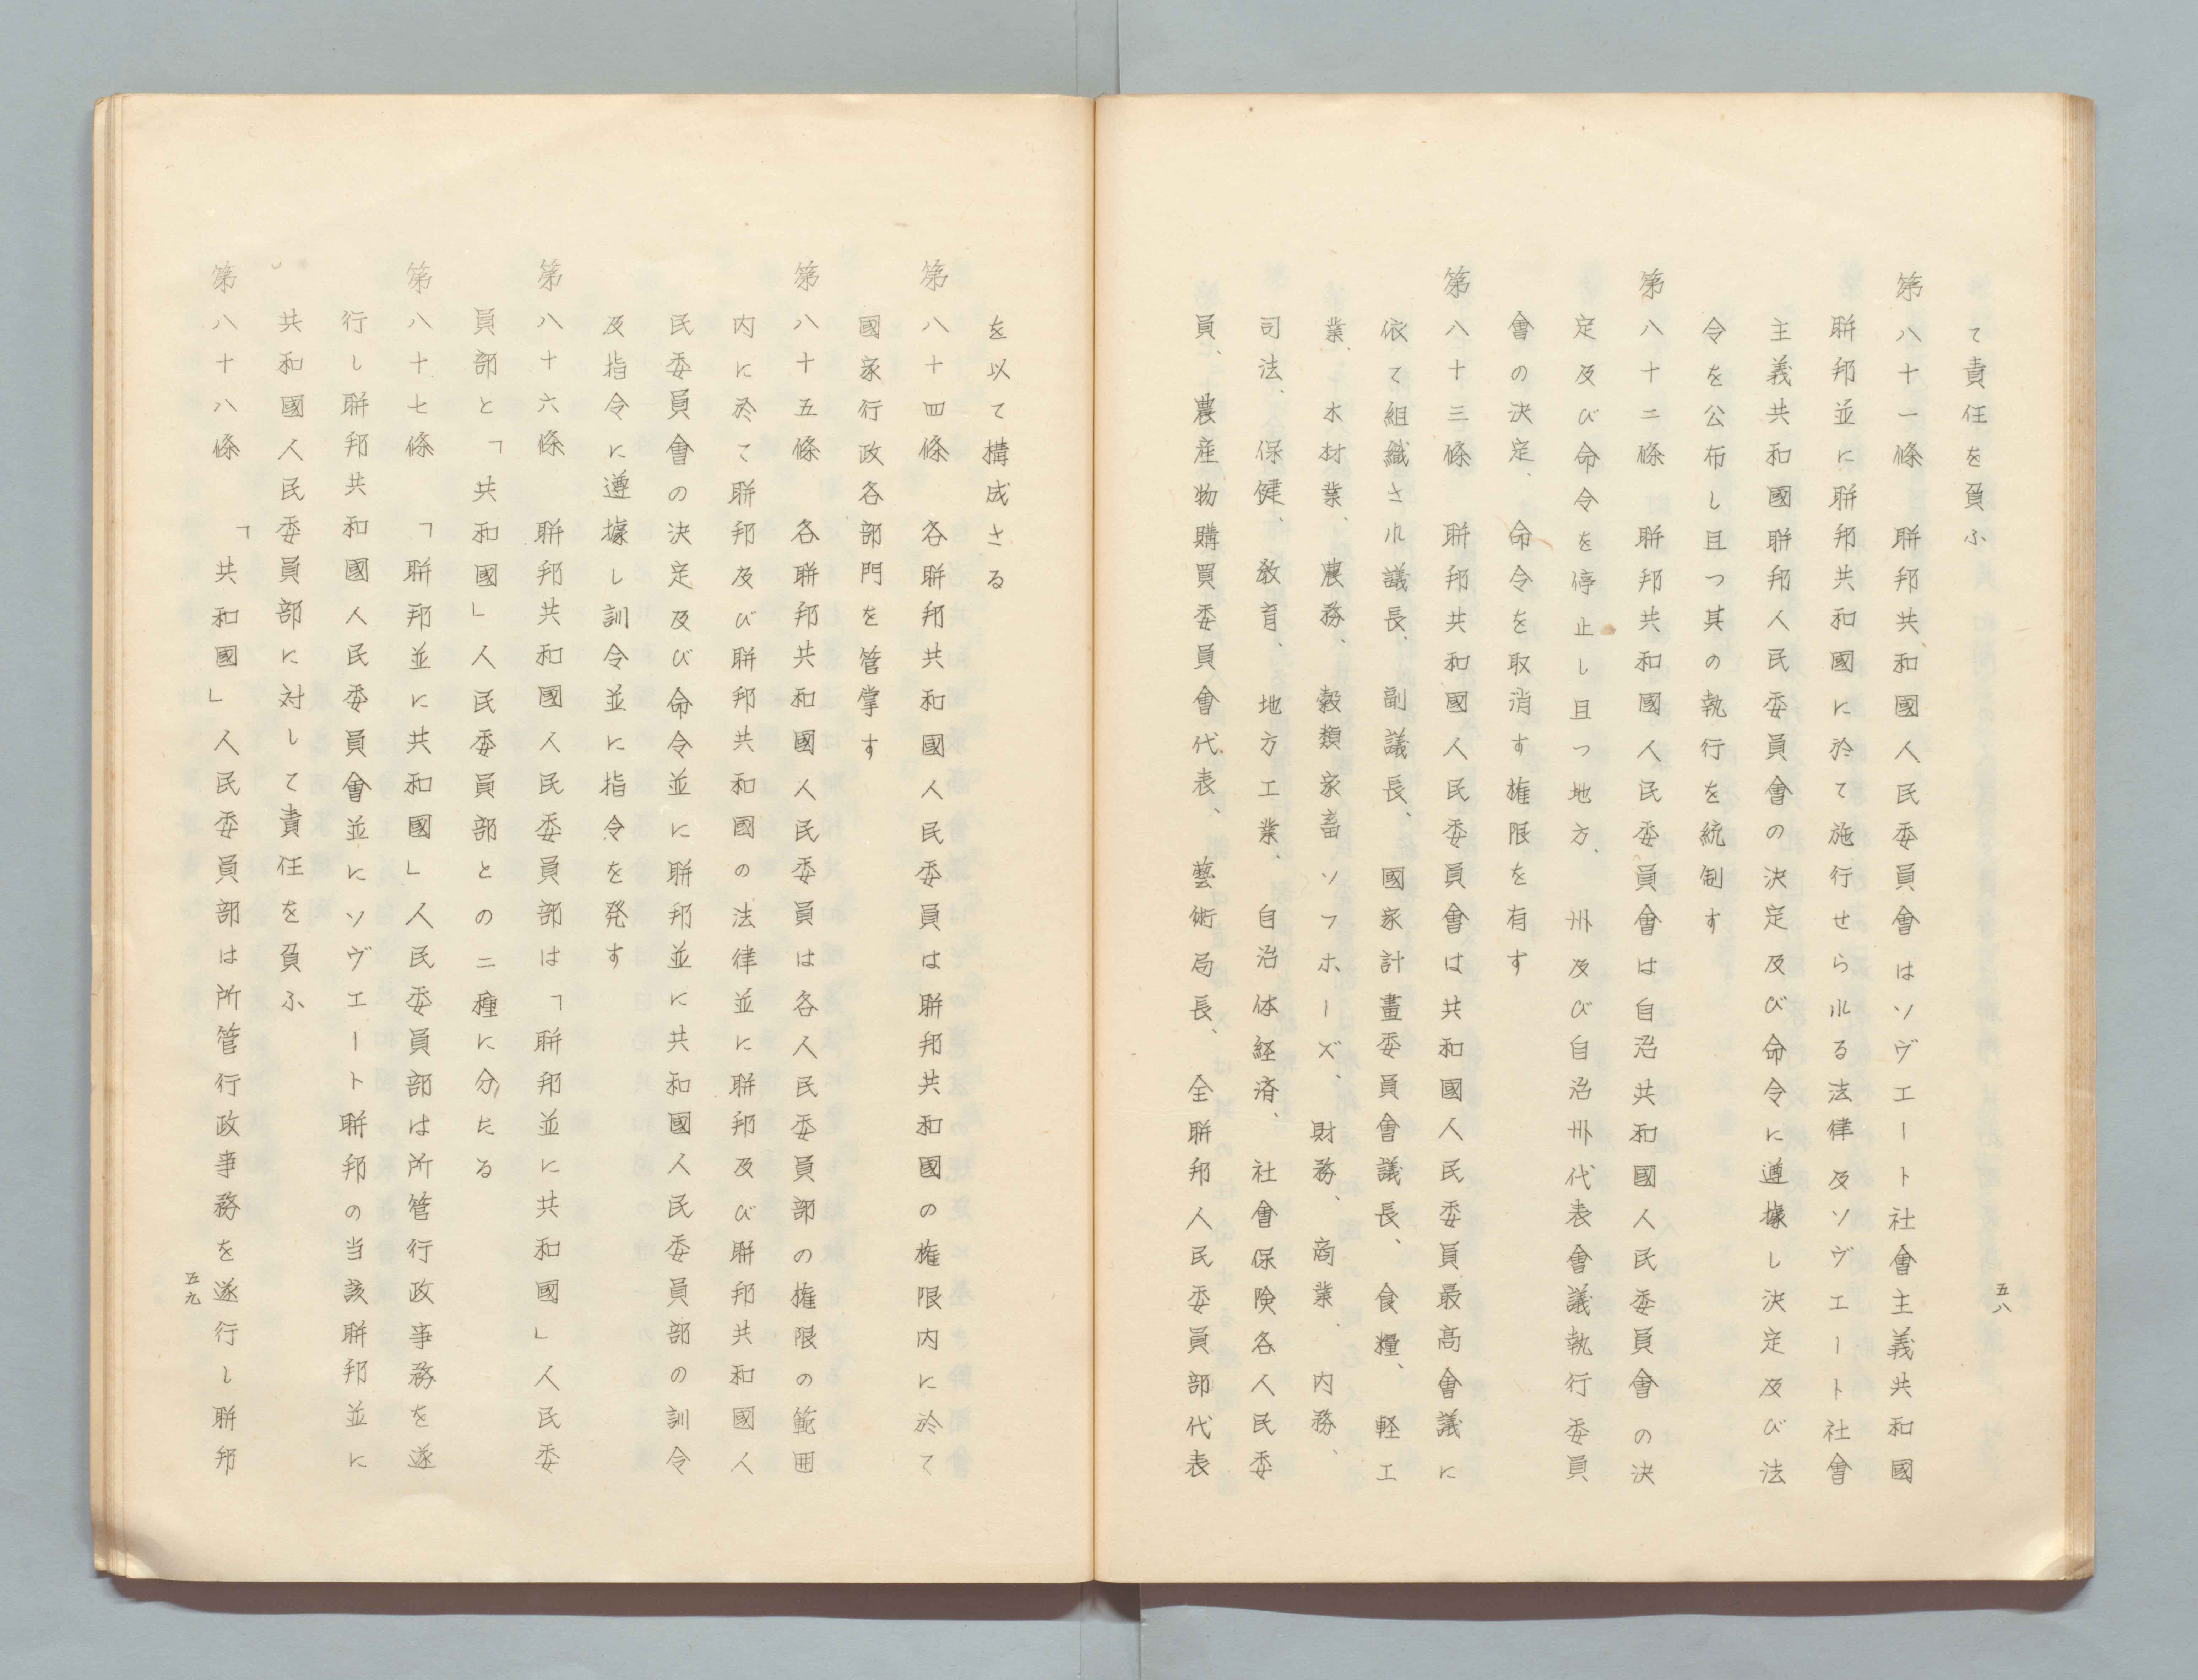 て責任を負ふ
第八十一條　聯邦共和國人民委員會はソヴエート社會主義共和國
聯邦並に聯邦共和國に於て施行せられる法律及ソヴエート社會
主義共和國聯邦人民委員會の決定及び命令に遵據し決定及び法
令を公布し且つ其の執行を統制す
第八十二條　聯邦共和國人民委員會は自治共和國人民委員會の決
定及び命令を停止し且つ地方、州及び自治州代表會議執行委員
會の決定、命令を取消す権限を有す
第八十三條　聯邦共和國人民委員會は共和國人民委員最高會議に
依て組織され議長、副議長、國家計畫委員會議長、食糧、軽工
業、木材業、農務、穀類家畜ソフホーズ、財務、商業、内務、
司法、保健、教育、地方工業、自治体経済、社會保険各人民委
員、農産物購買委員會代表、藝術局長、全聯邦人民委員部代表
五八
を以て構成さる
第八十四條　各聯邦共和國人民委員は聯邦共和國の権限内に於て
國家行政各部門を管掌す
第八十五條　各聯邦共和國人民委員は各人民委員部の権限の範囲
内に於て聯邦及び聯邦共和國の法律並に聯邦及び聯邦共和國人
民委員會の決定及び命令並に聯邦並に共和國人民委員部の訓令
及指令に遵據し訓令並に指令を発す
第八十六條　聯邦共和國人民委員部は「聯邦並に共和國」人民委
員部と「共和國」人民委員部との二種に分たる
第八十七條　「聯邦並に共和國」人民委員部は所管行政事務を遂
行し聯邦共和國人民委員會並にソヴエート聯邦の当該聯邦並に
共和國人民委員部に対して責任を負ふ
第八十八條　「共和國」人民委員部は所管行政事務を遂行し聯邦
五九